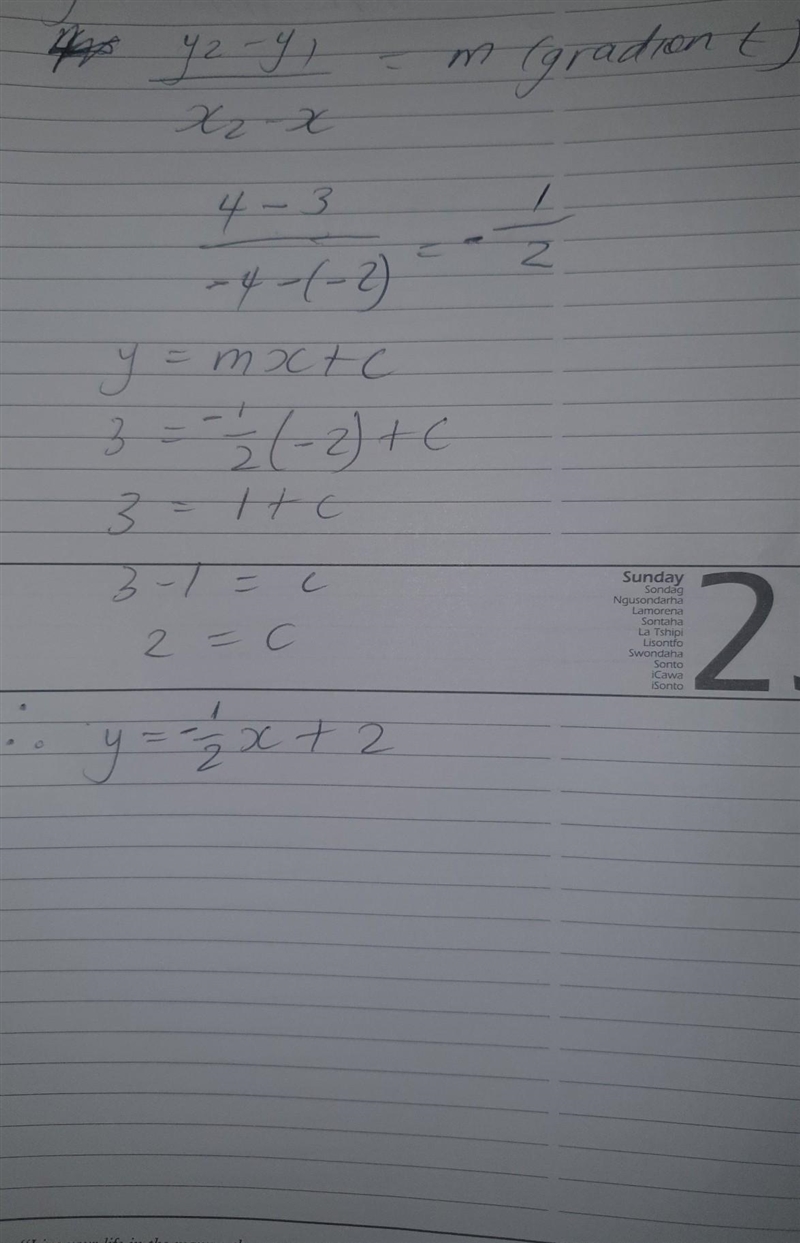 y2 - y1 / x2 - x = m (gradient)
4 - 3 / -4 - (-2) = - 1/2
y = mx + c
3 = -1/2 (-2) + c
3 = 1 + c
3 - 1 = c
2 = c
∴ y = -1/2 x + 2
Sunday
Sondag
Ngusondarha
Lamorena
Sontaha
La Tshipi
Lisontfo
Swondaha
Sonto
iCawa
iSonto